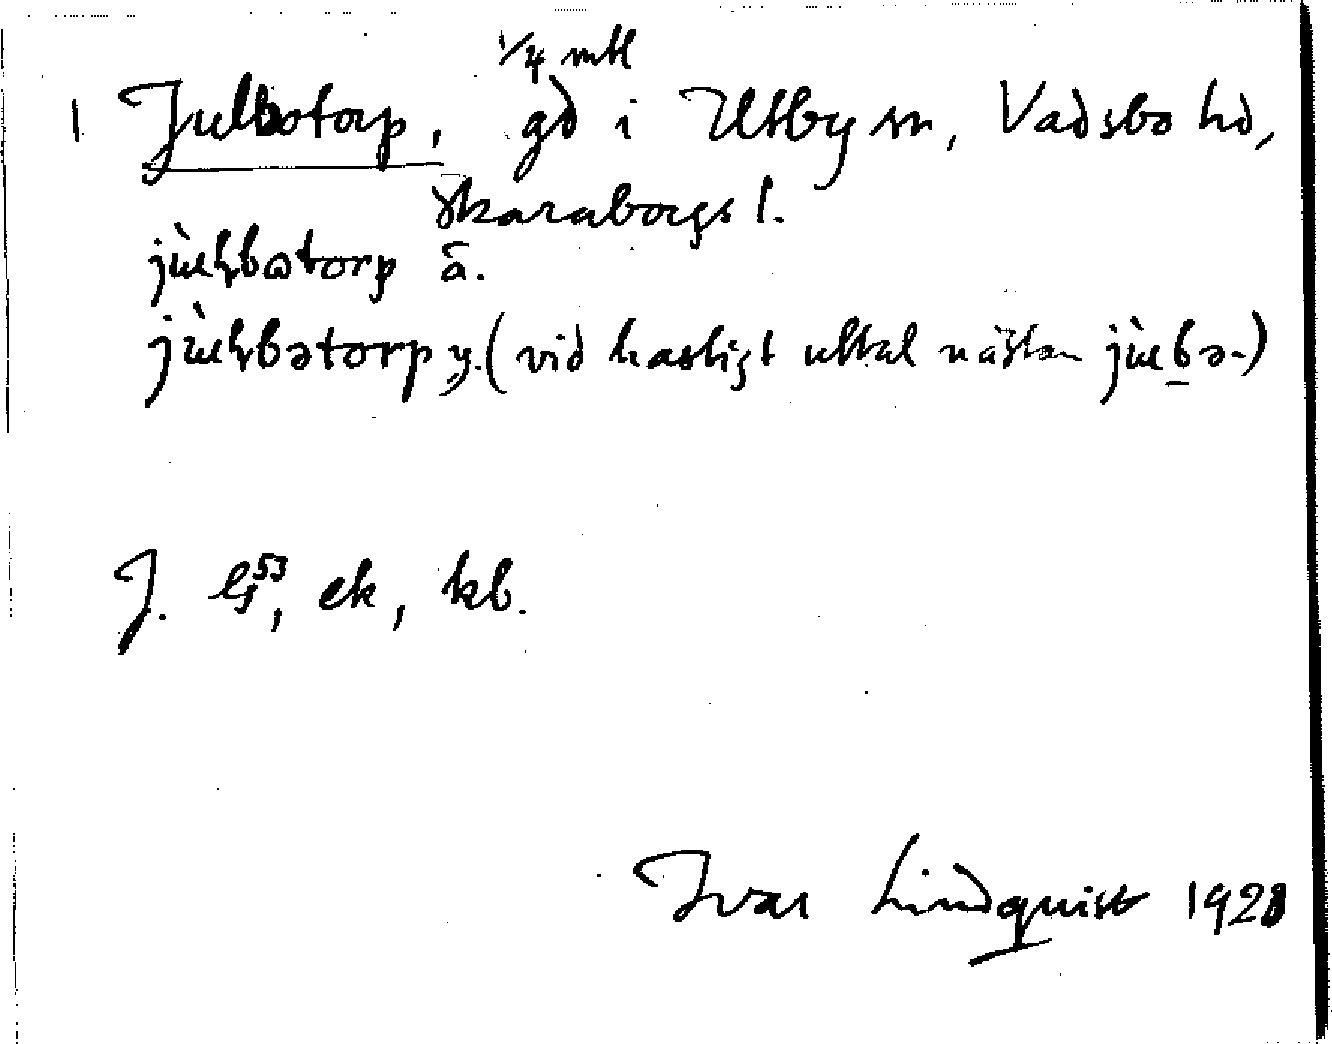 1/4 mtl
1 Julbotorp, gd i Utby sn, Vadsbo hd,
Skaraborgs l.
jùɽbɷtorp ä.
jùɽbətorp y. (vid hastigt uttal nästan jùbə-)
J. G⁵³, ek, kb.
Ivar Lindquist 1928